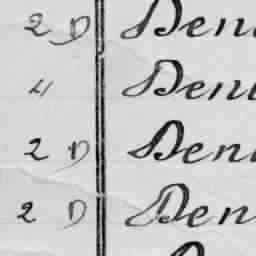 2 D Den
4 Den
2 D Den
2 D Den